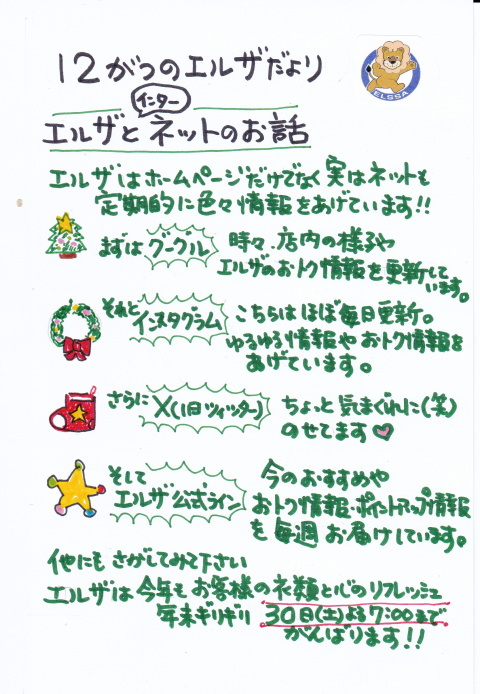 12がつのエルザだより
ELSSA
インター
エルザとネットのお話
エルザはホームページだけでなく実はネットも
定期的に色々情報をあげています!!
まずはグーグル 時々、店内の様子や
エルザのおトク情報を更新して
います。
それとインスタグラム こちらはほぼ毎日更新。
ゆるゆる情報やおトク情報を
あげています。
さらにX(旧ツイッター) ちょっと気まぐれに(笑)
のせてます
そして
エルザ公式ライン 今のおすすめや
おトク情報・ポイントアップ情報
を毎週お届けしています。
他にもさがしてみて下さい
エルザは今年もお客様の衣類と心のリフレッシュ
年末ギリギリ 30日(土)よる7:00まで
がんばります!!